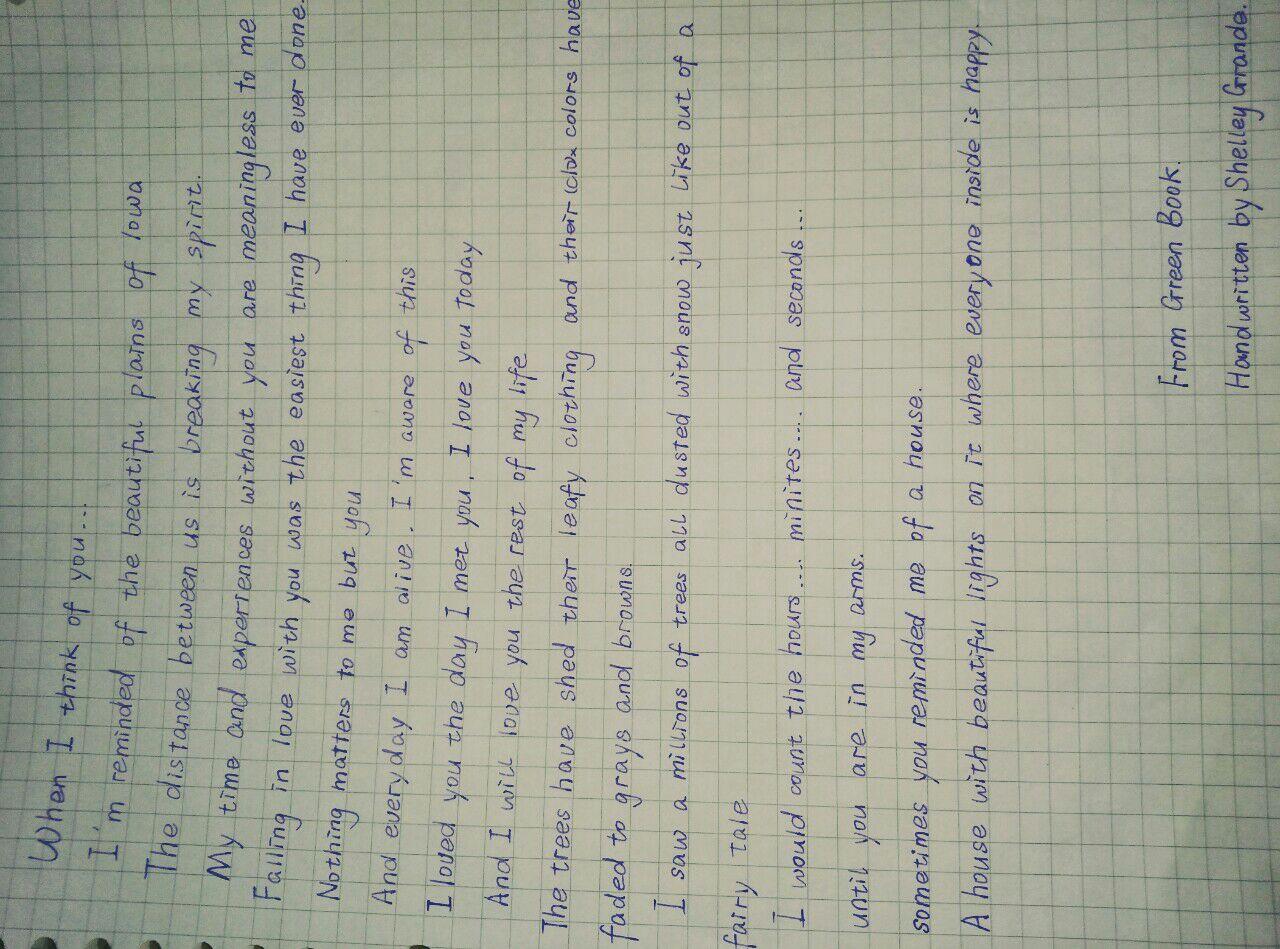 When I think of you...
I'm reminded of the beautiful plains of Iowa
The distance between us is breaking my spirit.
My time and experiences without you are meaningless to me
Falling in love with you was the easiest thing I have ever done.
Nothing matters to me but you
And everyday I am alive. I'm aware of this
I loved you the day I met you, I love you today
And I will love you the rest of my life
The trees have shed their leafy clothing and their colors have
faded to grays and browns.
I saw a millions of trees all dusted with snow just like out of a
fairy tale
I would count the hours.... minites.... and seconds...
until you are in my arms.
sometimes you reminded me of a house.
A house with beautiful lights on it where everyone inside is happy.
From Green Book.
Handwritten by Shelley Grande.